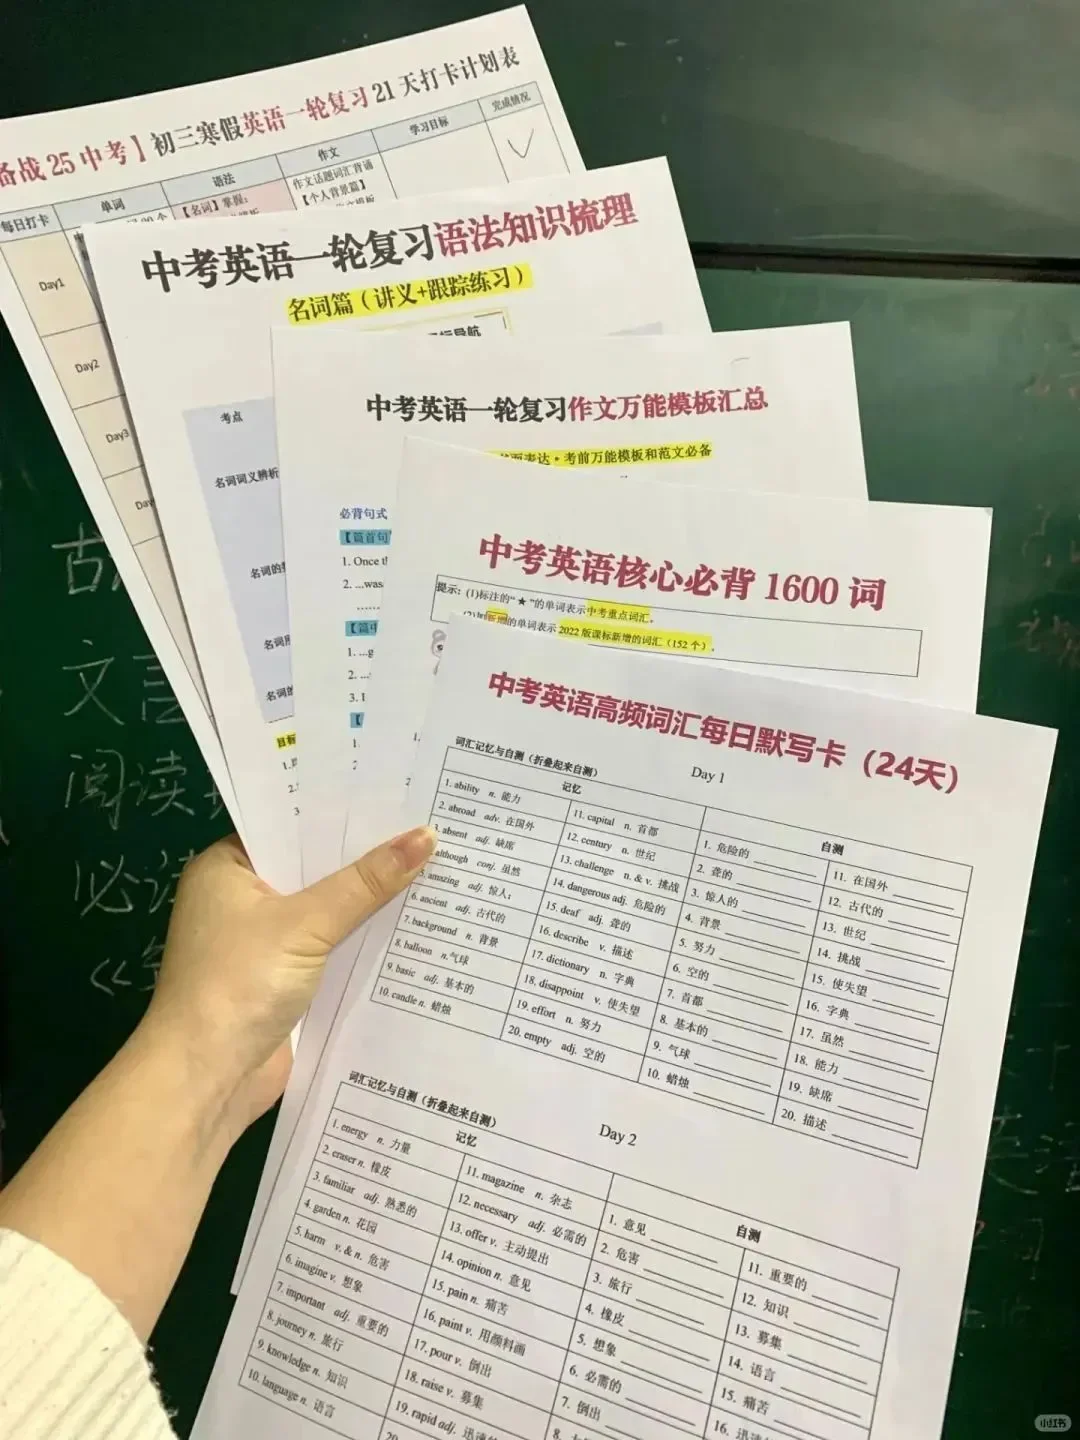 备战25中考】初三寒假英语一轮复习21天打卡计划表
每日打卡 单词 语法 作文 学习目标 完成情况
【名词】掌握：
作文话题词汇背诵
【个人背景篇】
Day1
Day2
Day3
中考英语一轮复习语法知识梳理
名词篇（讲义+跟踪练习）
考点
名词词义辨析
中考英语一轮复习作文万能模板汇总
考前万能模板和范文必备
必背句式
【篇首句
1. Once t
2. ...was
1. ...g
2. ...
3. I
中考英语核心必背1600词
提示：(1)标注的“★”的单词表示中考重点词汇。
的单词表示 2022版课标新增的词汇（152个）。
中考英语高频词汇每日默写卡（24天）
词汇记忆与自测（折叠起来自测） Day 1
记忆
自测
1. ability n. 能力
2. abroad adv. 在国外
3. absent adj. 缺席
although conj. 虽然
5. amazing adj. 惊人;
6. ancient adj. 古代的
7. background n. 背景
8. balloon n.气球
9. basic adj. 基本的
10. candle n. 蜡烛
11. capital n. 首都
12. century n. 世纪
13. challenge n. & v. 挑战
14. dangerous adj. 危险的
15. deaf adj. 聋的
16. describe v. 描述
17. dictionary n. 字典
18. disappoint v. 使失望
19. effort n. 努力
20. empty adj. 空的
1. 危险的
2. 聋的
3. 惊人的
4. 背景
5. 努力
6. 空的
7. 首都
8. 基本的
9. 气球
10. 蜡烛
11. 在国外
12. 古代的
13. 世纪
14. 挑战
15. 使失望
16. 字典
17. 虽然
18. 能力
19. 缺席
20. 描述
词汇记忆与自测（折叠起来自测） Day 2
记忆
自测
1. energy n. 力量
2. eraser n. 橡皮
3. familiar adj. 熟悉的
4. garden n. 花园
5. harm v. & n. 危害
6. imagine v. 想象
7. important adj. 重要的
8. journey n. 旅行
9. knowledge n. 知识
10. language n. 语言
11. magazine n. 杂志
12. necessary adj. 必需的
13. offer v. 主动提出
14. opinion n. 意见
15. pain n. 痛苦
16. paint v. 用颜料画
17. pour v. 倒出
18. raise v. 募集
19. rapid adj. 迅速的
20.
1. 意见
2. 危害
3. 旅行
4. 橡皮
5. 想象
6. 必需的
7. 倒出
8.
11. 重要的
12. 知识
13. 募集
14. 语言
15. 痛苦
16. 迅速的
文言
阅读
必读
小红书